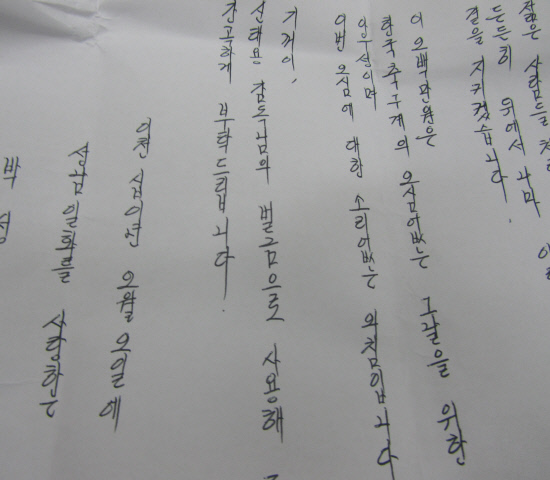 젊은 사람들
든든히 뒤에서 나마
곁을 지키겠습니다.
이 오백만원은
한국축구계의 오심없는 그날을 위한
이번 오심에 대한 소리없는 외침입니다
기꺼이,
신태용 감독님의 벌금으로 사용해
간곡하게 부탁드립니다.
이천 십이년 오월 오일에
성남일화를 사랑하는
박